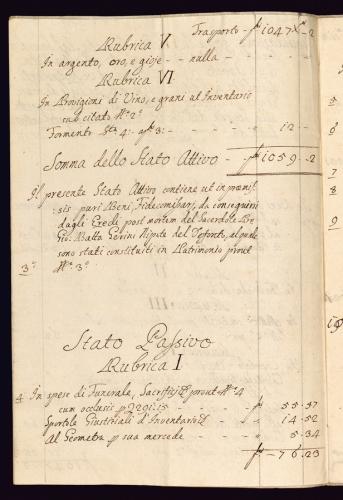 Trasporto - f 1047 - 2
Rubrica V.
In argento, oro, e gioje - - nulla - - -
Rubrica VI
In Provigioni di Vino, e grani ut Inventario
citato N.° 2.°
Formento Sta 4: a f 3: - - - - - 12 -
Somma dello Stato Attivo - f 1059 - 2
Il presente Stato Attivo contiene ut in præmis-
sis puri Beni, Fidecomissari, da conseguirsi
dagli Eredi, post mortem del Sacerdote Don
Gio: Batta Gerini Nipote del Testore, al quale
sono stati constituiti in Patrimonio prout
3.° N.° 3.°
Stato Passivo
Rubrica I
4 In spese di Funerale, Sacrifizi prout N.° 4
cum occlusis - - f 55.37
Sportole Giustiziali d'Inventario - - 14.52
Al Geometra p sua mercede - - - 5.34
f - 76.23